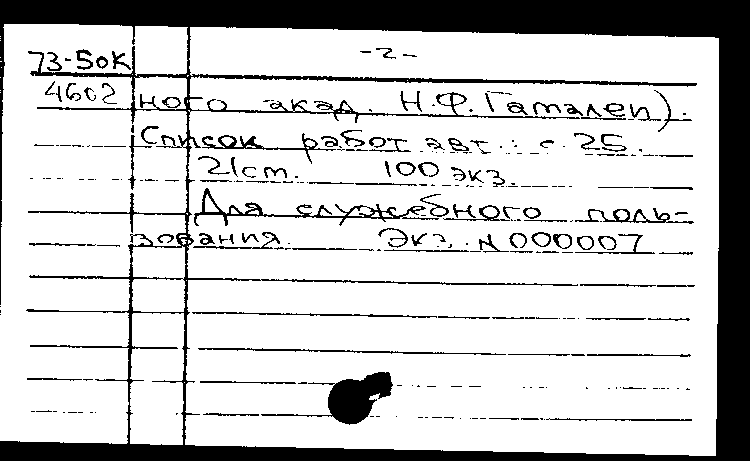 73-5ок -2-
4602 ного акад. Н.Ф. Гамалеи).
Список работ авт.: с. 25.
21cm. 100 экз.
Для служебного поль-
зования. Экз. N 000007